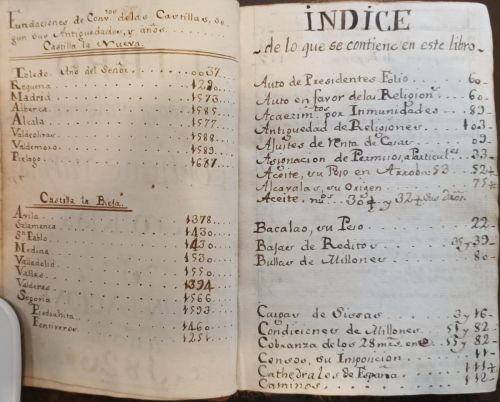 Fundaciones de Conv.tos de las Castillas, se-
gun sus Antiguedades, y años.
Castilla la Nueva.
Toledo. Año del Señor. 0037.
Requena
Madrid 1573
Alberca 1585
Alcala 1577
Valdeolivas 1588
Valdemoro 1589
Pielago 1687
Castilla la Bieja.
Avila 1378
Salamanca 1430
Sn Pablo 1430
Medina 1430
Valladolid 1530
Vallad. 1550
Valderas 1394
Segovia 1566
Piedrahita 1593
Fontiveros 1460
1251
ÍNDICE
de lo que se contiene en este libro.
Auto de Presidentes Folio 60
Auto en favor de las Religion.s 60
Acaezim.tos por Inmunidades 89
Antiguedad de Religiones 103
Ajustes de Venta de Casas 09
Asignacion de Permisos, a Particul.es 33
Aceite, su Peso en Arrobas 53 52
Alcavalas, su Origen 75
Aceite, n.os 30 y 32 sus dros.
Bacalao, su Peso 22
Bajas de Reditos 35 y 39
Bullas de Millones 80
Cuipas de Sissas 3 y 16
Condiciones de Millones 51 y 82
Cobranza de los 28 m.es en 51 y 82
Censos, su Imposicion 11
Cathedrales de España 111
Caminos 112